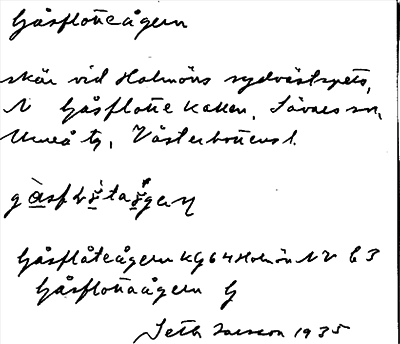 Gåsflotteågern
skär vid Holmöns sydvästspets,
N Gåsflottekallen, Sävar sn,
Umeå tg, Västerbottens l.
Gåsflåteågern KG64 Holmön NV C3
Gåsflottaågern G
Seth Larsson 1935